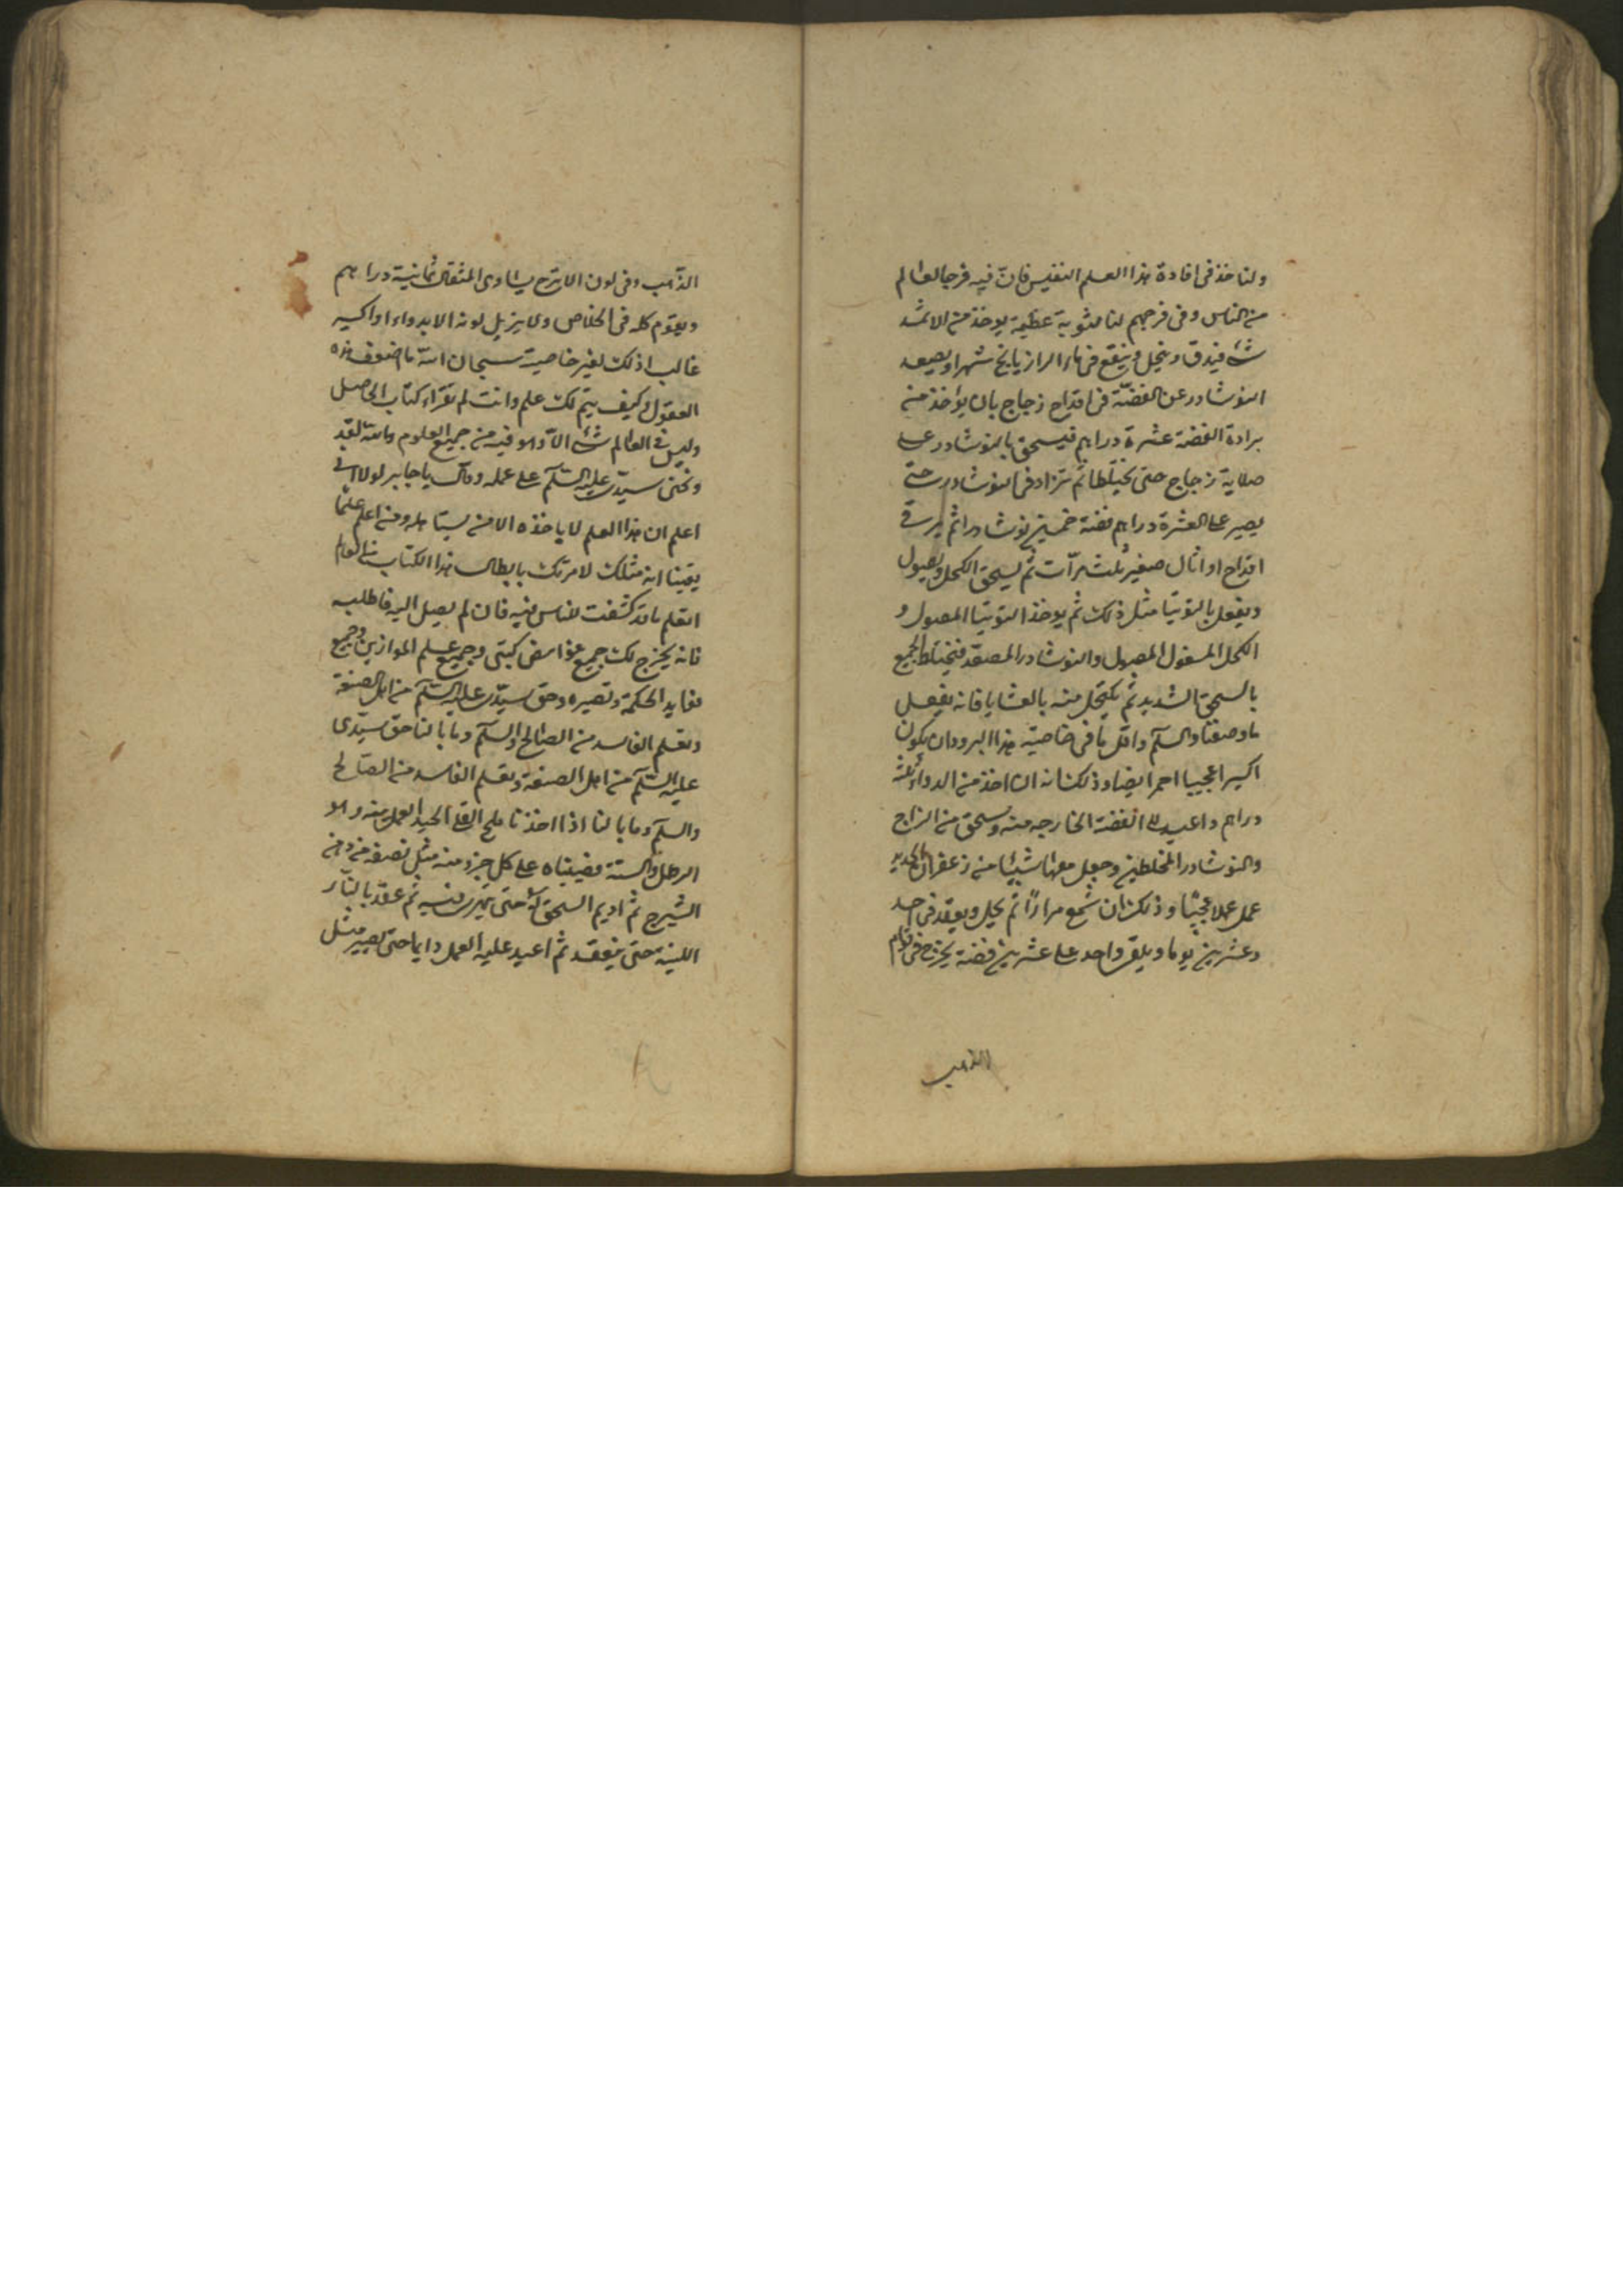 ولناخذ في افادة هذا العلم النفيس فان فيه فرجا لعالم
من الناس وفي فرجهم لنا مثوبة عظيمة يوخذ من الاثمد
شئ فيدق وينخل وينقع في ماء الرازيانج شهرا ويصعد
النوشادر عن الفضّة في اقداح زجاج بان يؤخذ من
برادة الفضة عشرة دراهم فيسحق بالنوشادر على
صلاية زجاج حتى يختلطا ثم تزاد في النوشادر حتى
يصير على العشرة دراهم فضة خمسين نوشادرا ثم في
اقداح او اثال صغير ثلث مرّات ثم يسحق الكحل ويصول
ويفعل بالتوتيا مثل ذلك ثم يوخذ التوتيا المصول و
الكحل المصول والنوشادر المصعّد فيختلط الجميع
بالسحق الشديد ثم يكتحل منه بالعشايا فانه يفعل
ما وصفنا والسلم واقل ما في خاصيّة هذا البرود ان يكون
اكسيرا عجيبا احمر ايضا وذلك انه ان اخذ من الدواء ثلثة
دراهم واعيد الى الفضة الخارجه منه وسحق من الزاج
والنوشادر المختلطين وجعل معها شيئا من زعفران الحديد
عمل عملا عجيبا وذلك ان شمع مرارًا ثم يحل ويعقد في احد
وعشرين يوما ويلقى واحد على عشرين فضة يخرج في قوام
الذهب
الذّهب وفي لون الاترج يساوى المثقال ثمانية دراهم
ويقوم كله في الخلاص ولا يزيل لونه الا بدواء او اكسير
غالب اذلك لغير خاصية سبحان الله ما اضعف هذه
العقول وكيف يتم لك علم وانت لم تقراء كتاب الحاصل
وليس في العالم شئ الاّ وهو فيه من جميع العلوم والله لقد
وبخني سيدى عليه السّلم على عمله وقال يا جابر لولا اني
اعلم ان هذا العلم لا ياخذه الا من يستاهله ومن اعلم علما
يقينا انه مثلك لامرتك بابطال هذا الكتاب من العالم
اتعلم ما قد كشفت للناس فيه فان لم يصل اليه فاطلبه
فانه يخرج لك جميع غوامض كتبى وجميع علم الموازين وجميع
فوايد الحكمة وتصيره وحق سيّدى عليه السّلم من اهل الصنعة
وتعلم الفاسد من الصالح والسلم وما بالنا حق سيّدى
عليه السّلم من اهل الصنعة وتعلم الفاسد من الصّالح
والسلم وما بالنا اذا اخذنا ملح القلى الجيد العمل منه وهو
الرطل والستة فصيبناه على كل جزو منه مثل نصفه من دهن
الشيرج ثم اديم السحق له حتى فيه ثم عقد بالنّار
اللينة حتى ينعقد ثم اعيد عليه العمل دايما حتى يصير مثل